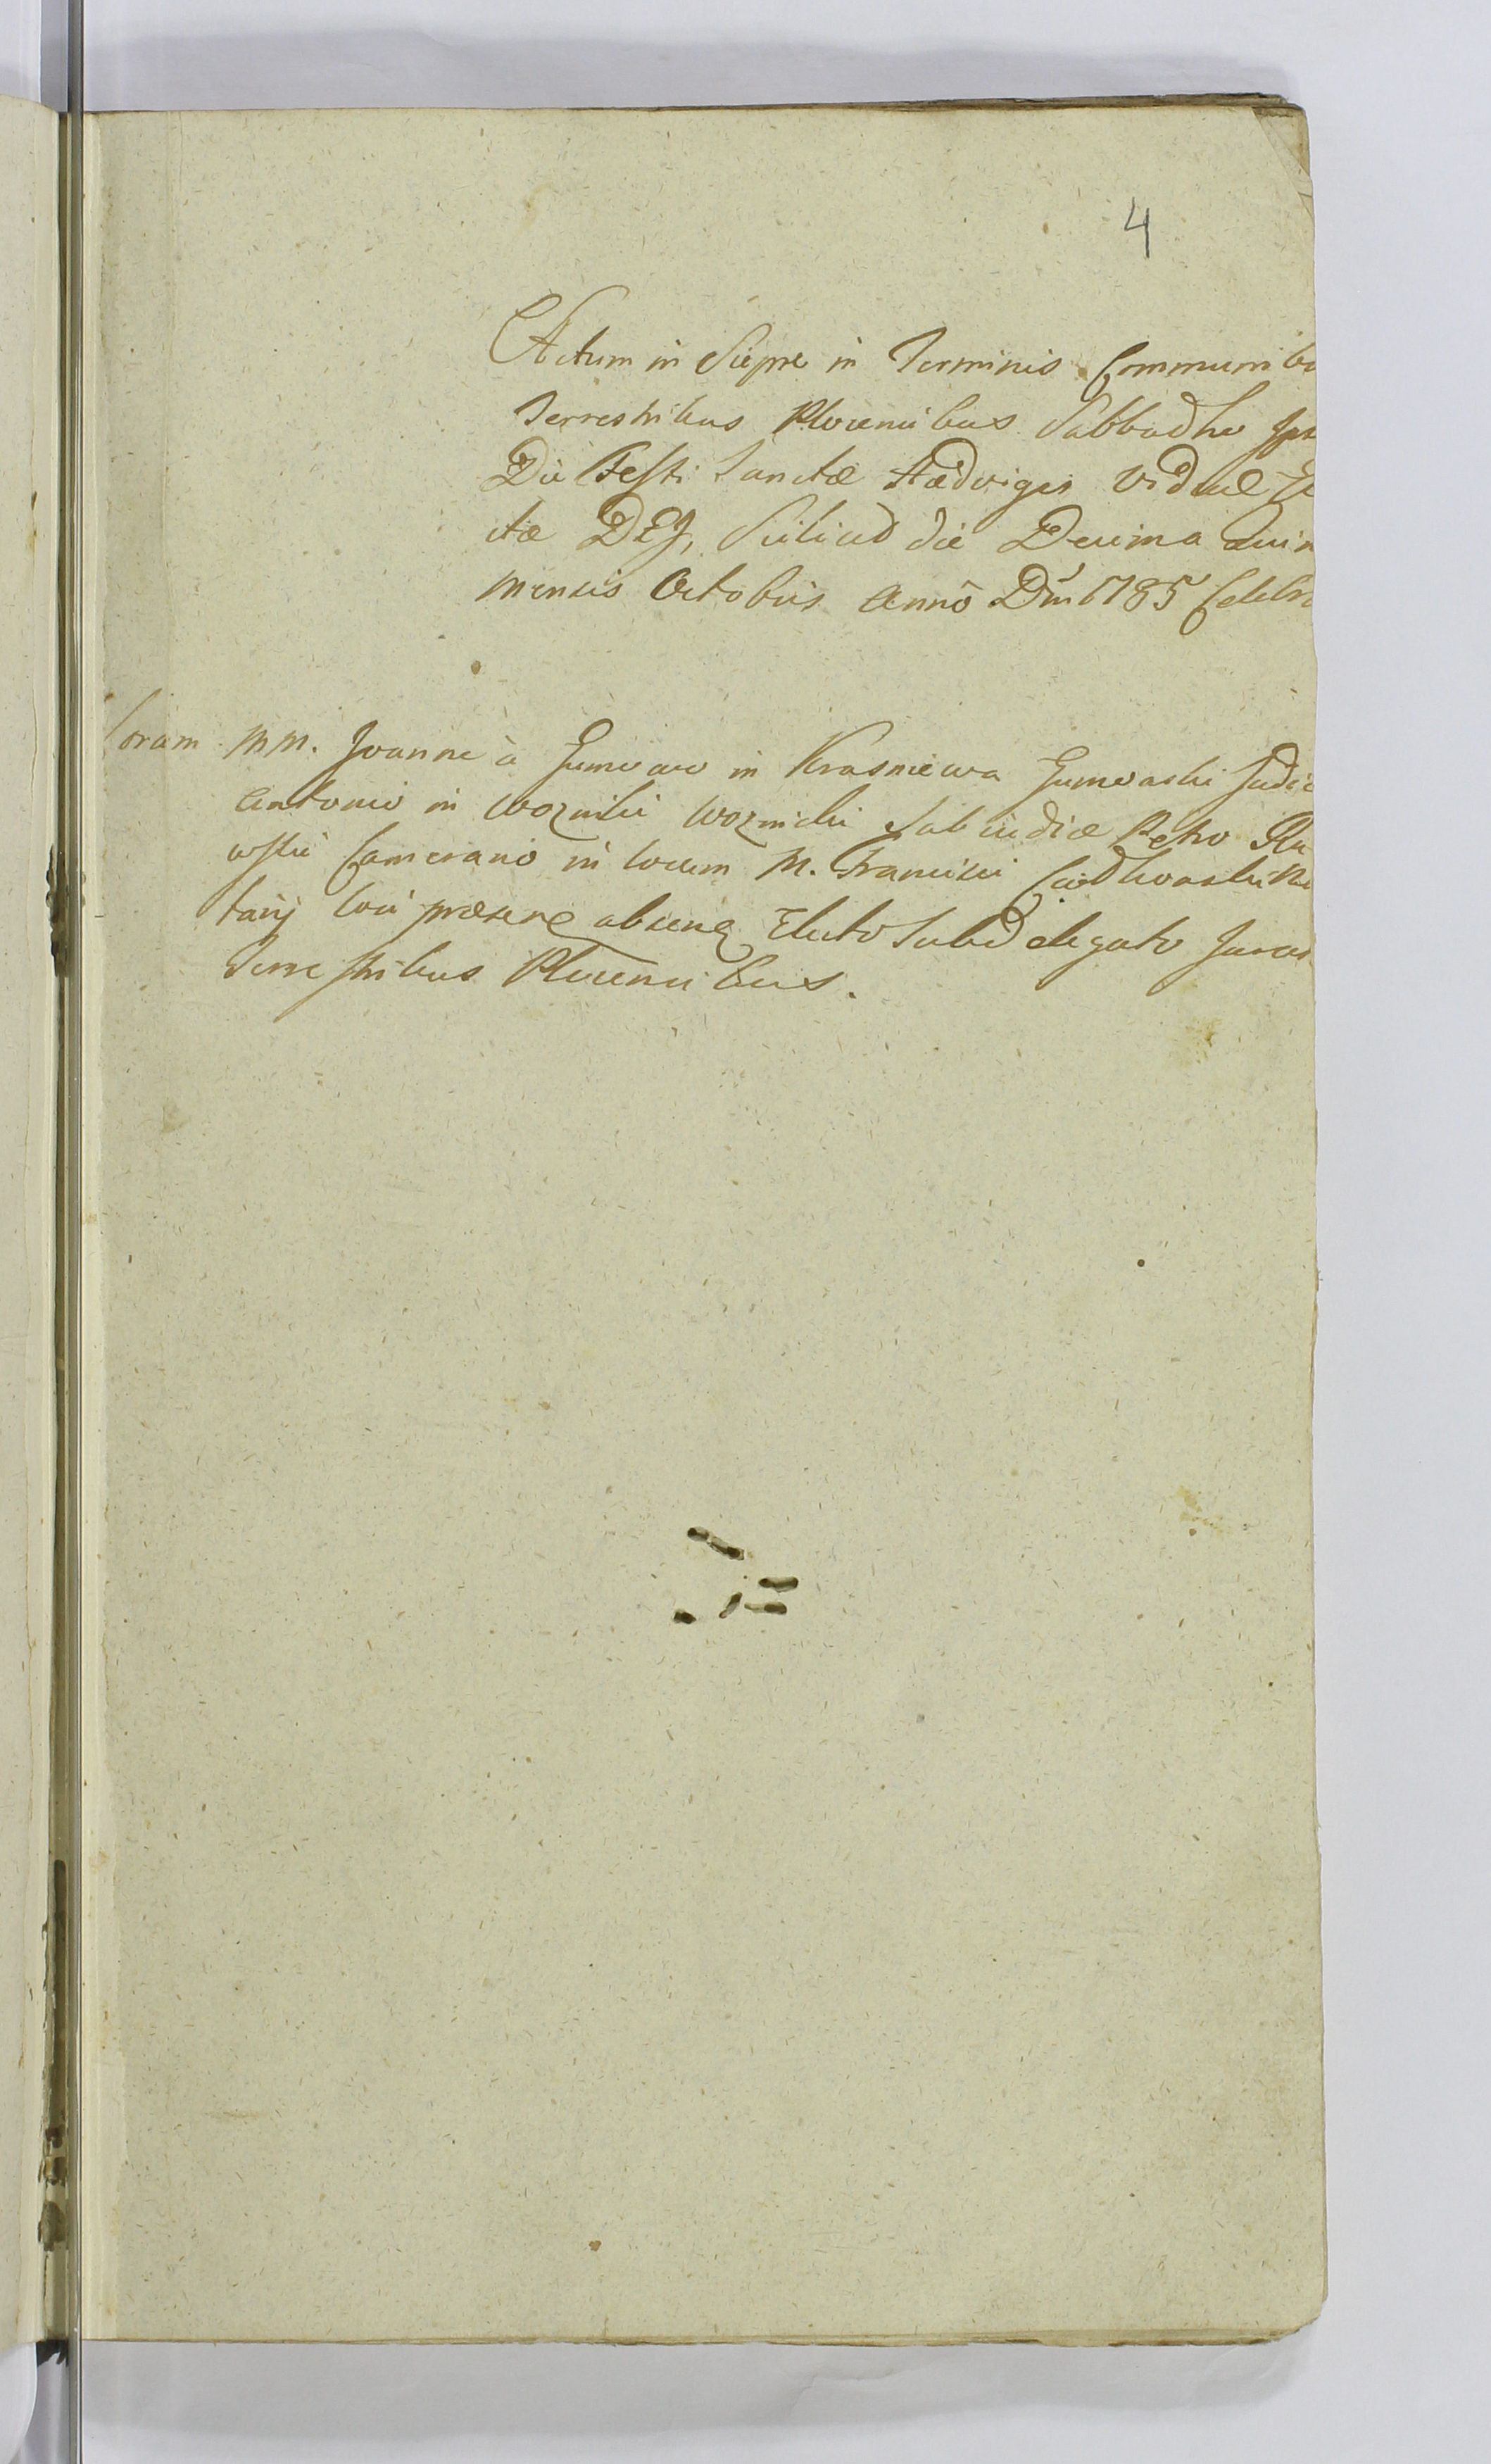 4
Actum in Siepre in Terminis Communibu
Terrestribus Plocensibus Sabbatho Ips
Die Festi Sanctæ Hædvigis Viduæ Ele
ctæ DEJ, Scilicet die Decima Quin
mensis Octobris Annô Dni 1785 Celebr
Coram MM. Joanne à Gumowo in Krasniewa Gumowski Judic
Antonio in Wozniki Woznicki Subiudice Petro
wski Camerario in locum M. Francisci No
tarij loci præsens absens Electo Subdelegato Jurat
Terrestribus Plocensibus.